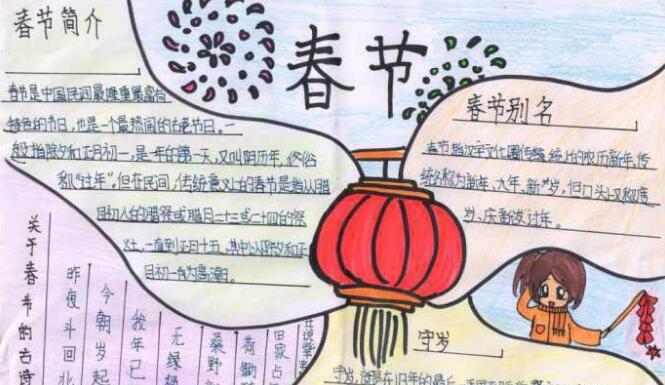 春节
春节简介
春节是中国民间最隆重最富有
特色的节日，也是一个最热闹的古老节日。一
般指除夕和正月初一，是一年的第一天，又叫阴历年，俗
和“过年”，但在民间，传统意义上的春节是指从腊
月初八的腊祭或腊月二十三或二十四的祭
灶，一直到正月十五，其中以除夕和正
月初一为高潮。
春节别名
春节指汉字文化圈传统上的农历新年，传
统名称为新年、大年、新岁，但口头又称度
岁、庆新岁、过年。
关于春节的古诗
昨夜斗回北
今朝岁起
我年已
无禄
桑野
荷锄
田家占
守岁
守岁，就是在旧年的最后